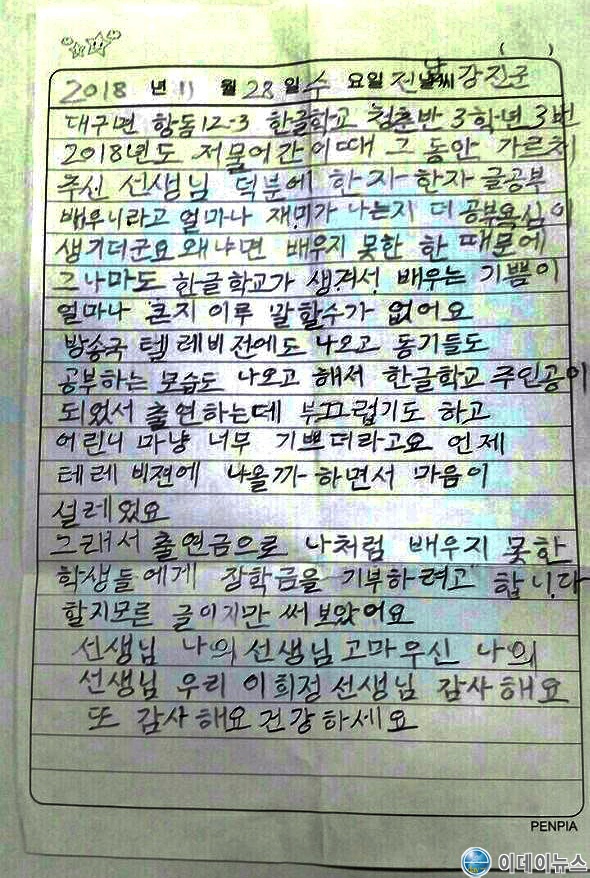 2018 년 11 월 28 일 수 요일 전날씨 강진군
대구면 항동12-3 한글학교 청춘반 3학년 3번
2018년도 저물어간 이때 그 동안 가르처
주신 선생님 덕분에 한자 한자 글공부
배우니라고 얼마나 재미가 나는지 더 공부욕심이
생기더군요 왜냐면 배우지 못한 한 때문에
그나마도 한글학교가 생겨서 배우는 기쁨이
얼마나 큰지 이루 말할수가 없어요
방송국 텔레비전에도 나오고 동기들도
공부하는 모습도 나오고 해서 한글학교 주인공이
되었서 출연하는데 부끄럽기도 하고
어린니 마냥 너무 기쁘더라고요 언제
테레비젼에 나올까 하면서 마음이
설레었요
그래서 출연금으로 나처럼 배우지 못한
학생들에게 장학금을 기부하려고 합니다
할지모른 글이지만 써보았어요
선생님 나의 선생님 고마우신 나의
선생님 우리 이희정 선생님 감사해요
또 감사해요 건강하세요
PENPIA
이데이뉴스